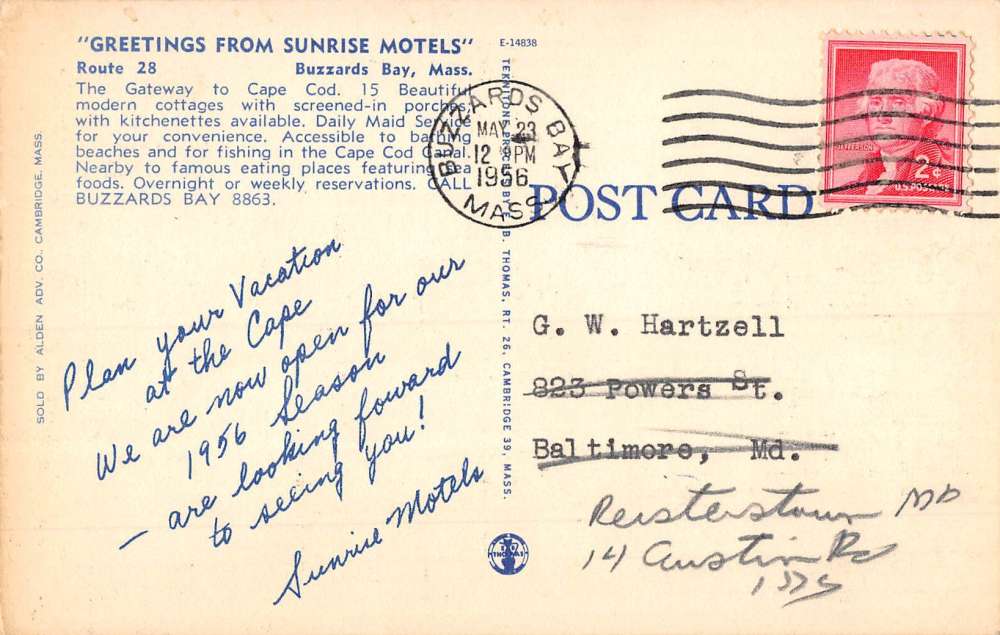 "GREETINGS FROM SUNRISE MOTELS"
Route 28 Buzzards Bay, Mass.
The Gateway to Cape Cod. 15 Beautiful
modern cottages with screened-in porches,
with kitchenettes available. Daily Maid Service
for your convenience. Accessible to bathing
beaches and for fishing in the Cape Cod Canal.
Nearby to famous eating places featuring sea
foods. Overnight or weekly reservations. CALL
BUZZARDS BAY 8863.
E-14838
SOLD BY ALDEN ADV. CO. CAMBRIDGE, MASS.
B. THOMAS, RT. 26, CAMBRIDGE 39, MASS.
BUZZARDS BAY
MAY 23
12 PM
1956
MASS.
JEFFERSON
2¢
U.S. POSTAGE
POST CARD
Plan your Vacation
at the Cape
We are now open for our
1956 Season
— are looking foward
to seeing you!
Sunrise Motels
G. W. Hartzell
823 Powers St.
Baltimore, Md.
Reisterstown MD
14 Austin Rd
THOMAS